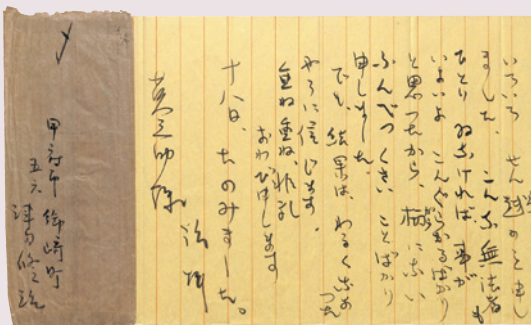 いろいろ せん越のこと申し
ました。こんな無法者も
ひとり居なければ、事が
いよいよ こんぐらかるばかり
と思つたから、柄にない
ふんべつくさい ことばかり
申しました。
でも、結果は、わるくなかつた
やうに信じます。
重ね重ね、非礼
おわび申します
十八日、たのみました。
治拝
〆
甲府市 御崎町
五六
津島修治